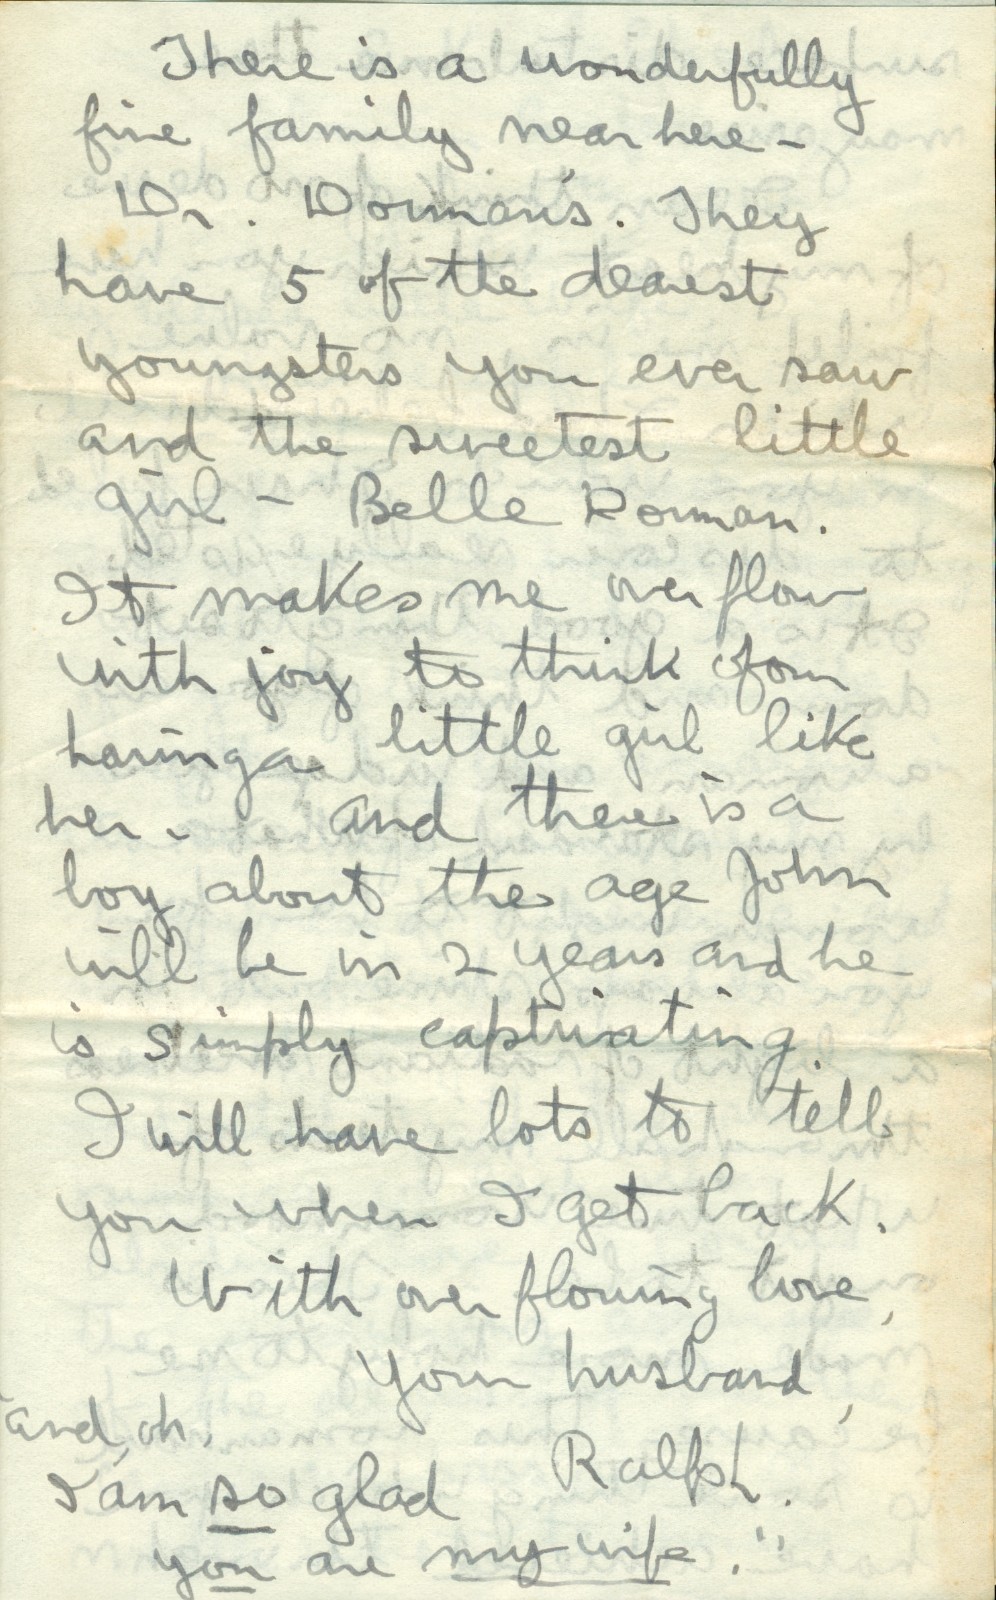 There is a wonderfully
fine family near here -
Dr. Dorman's. They
have 5 of the dearest
youngsters you ever saw
and the sweetest little
girl - Belle Dorman.
It makes me overflow
with joy to think of our
having a little girl like
her. And there is a
boy about the age John
will be in 2 years and he
is simply captivating.
I will have lots to tell
you when I get back.
With overflowing love,
Your husband,
Ralph.
"and, oh,
I am so glad
you are my wife."